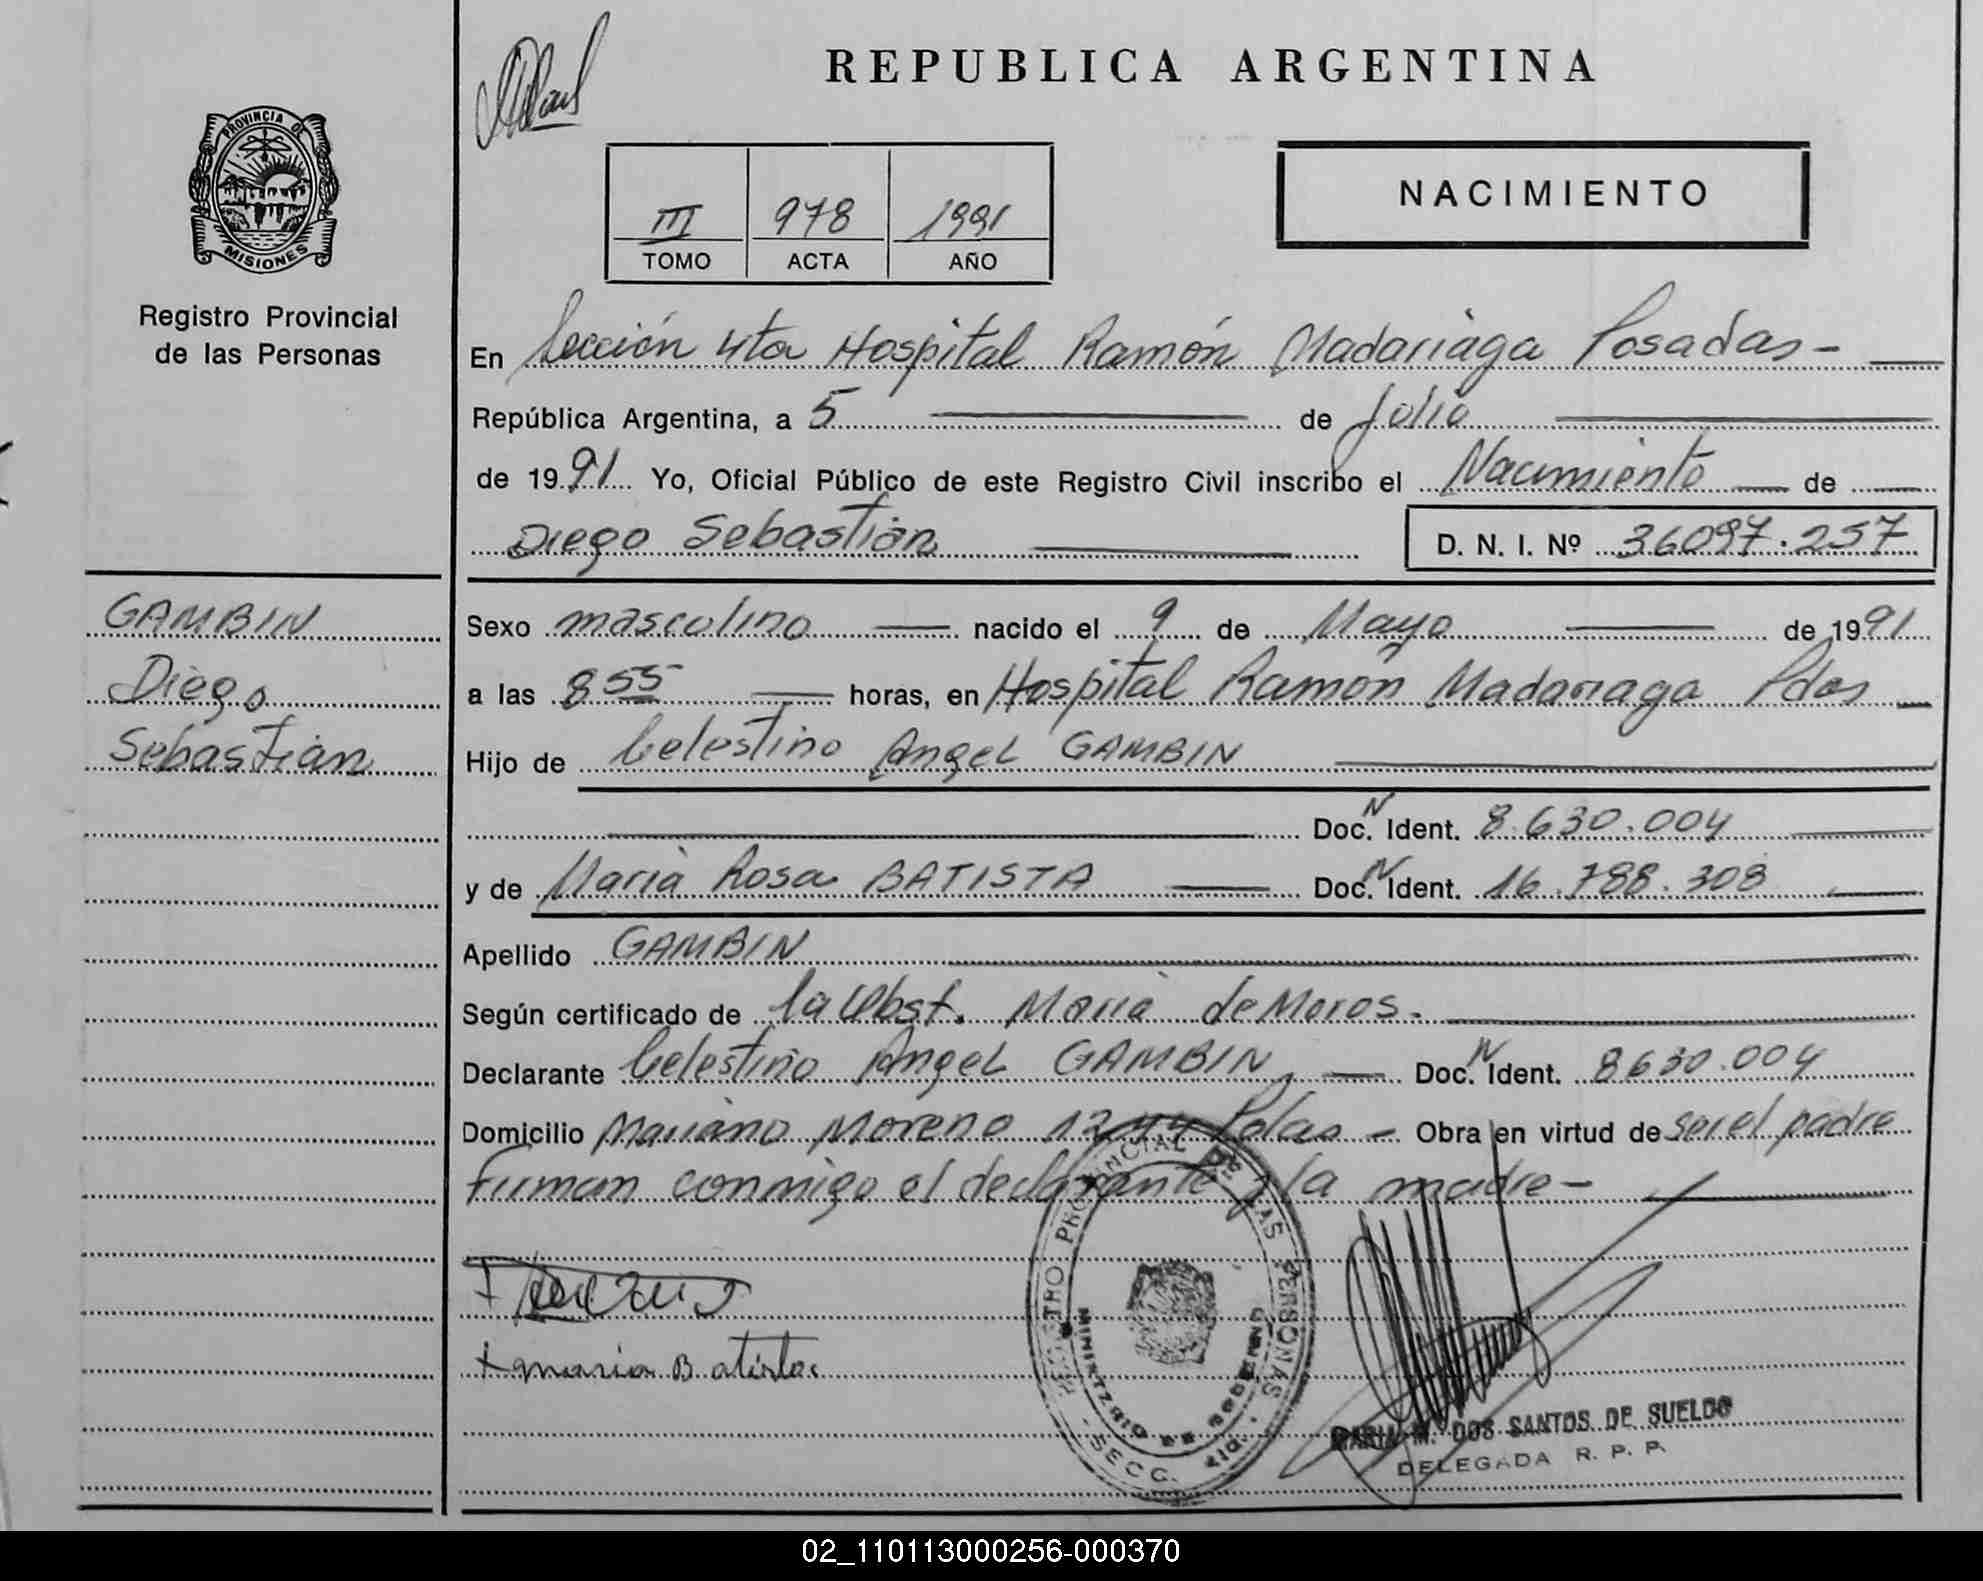 REPUBLICA ARGENTINA
PROVINCIA DE
MISIONES
Registro Provincial
de las Personas
III 978 1991
TOMO ACTA AÑO
NACIMIENTO
En Sección 4ta Hospital Ramón Madariaga Posadas -
República Argentina, a 5 de Julio
de 1991 Yo, Oficial Público de este Registro Civil inscribo el Nacimiento de
Diego Sebastián D. N. I. Nº 36097.257
GAMBIN
Diego
Sebastián
Sexo masculino nacido el 9 de Mayo de 1991
a las 8 55 horas, en Hospital Ramón Madariaga Pdas
Hijo de Celestino Angel GAMBIN
Doc. N Ident. 8.630.004
y de Maria Rosa BATISTA Doc. N Ident. 16.788.308
Apellido GAMBIN
Según certificado de la Obst. Maria de Moros.
Declarante Celestino Angel GAMBIN, Doc. N Ident. 8630.004
Domicilio Mariano Moreno 1244 Pdas - Obra en virtud de ser el padre
firman conmigo el declarante y la madre -
REGISTRO PROVINCIAL DE LAS PERSONAS
MINISTERIO DE GOBIERNO
SECC.
+ maria Batista
MARIA M. DOS SANTOS DE SUELDO
DELEGADA R. P. P.
02_110113000256-000370